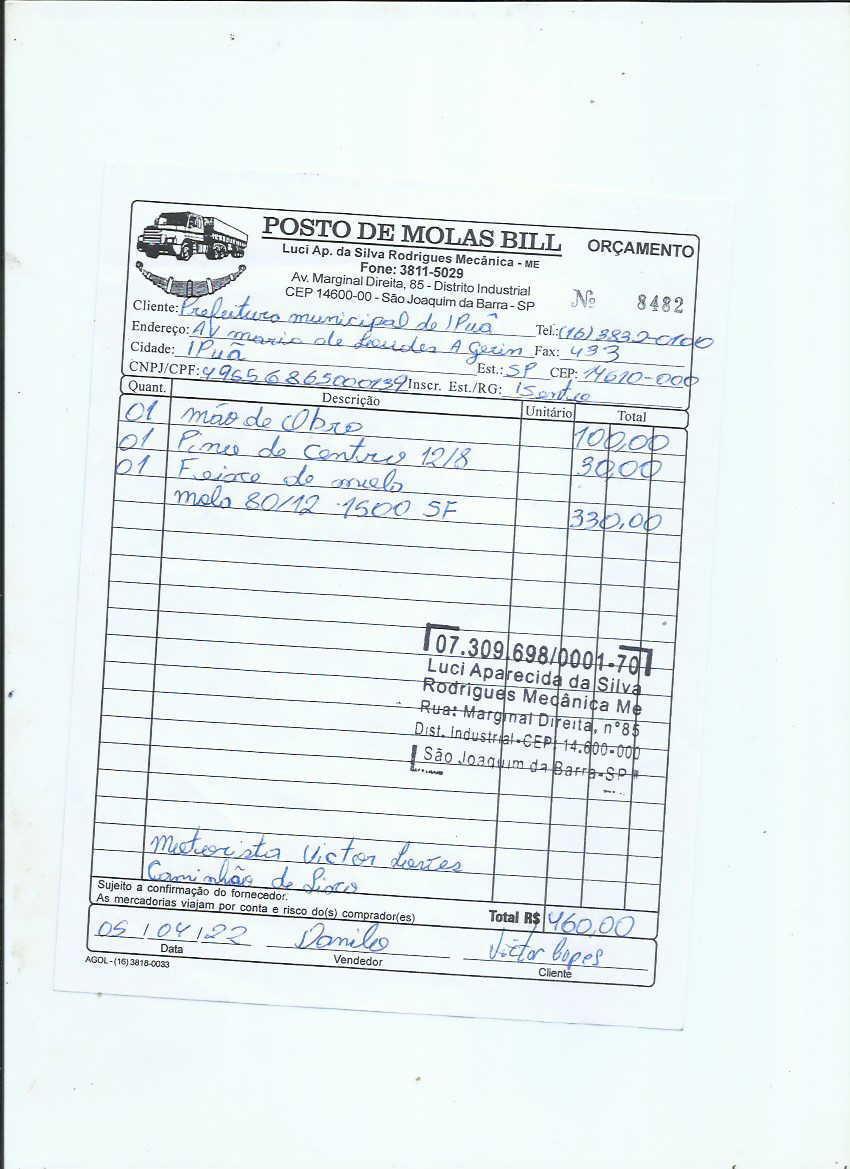 POSTO DE MOLAS BILL
ORÇAMENTO
Luci Ap. da Silva Rodrigues Mecânica - ME
Fone: 3811-5029
Av. Marginal Direita, 85 - Distrito Industrial
CEP 14600-00 - São Joaquim da Barra - SP
Nº 8482
Cliente: Prefeitura municipal de IPuã Tel.: (16) 3832-0100
Endereço: AV maria de Loudes A Gerin Fax: 433
Cidade: IPuã Est.: SP CEP: 14610-000
CNPJ/CPF: 49656865000139 Inscr. Est./RG: Isento
Quant. Descrição Unitário Total
01 mão de Obra 100,00
01 Pino de Centro 12/8 30,00
01 Feixe de
mola 80/12 1500 SF 330,00
07.309.698/0001-70
Luci Aparecida da Silva
Rodrigues Mecânica Me
Rua: Marginal Direita, n°85
Dist. Industrial-CEP: 14.600-000
São Joaquim da Barra-SP
Motorista Victor Lopes
Caminhão de Lixo
Sujeito a confirmação do fornecedor.
As mercadorias viajam por conta e risco do(s) comprador(es)
Total R$ 460,00
05 / 04 / 22 Danilo Victor Lopes
Data Vendedor Cliente
AGOL - (16) 3818-0033